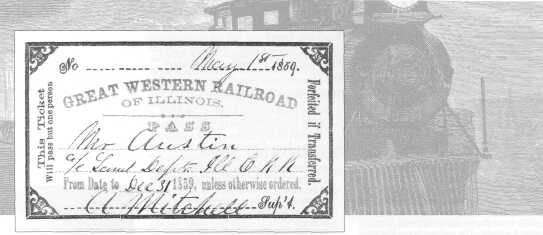 No May 1st 1859.
GREAT WESTERN RAILROAD
OF ILLINOIS.
PASS
Mr Austin
a/c Land Dept. Ill C R R
From Date to Dec 31 1859, unless otherwise ordered.
A Mitchell Sup't.
This Ticket
Will pass but one person
Forfeited if Transferred.